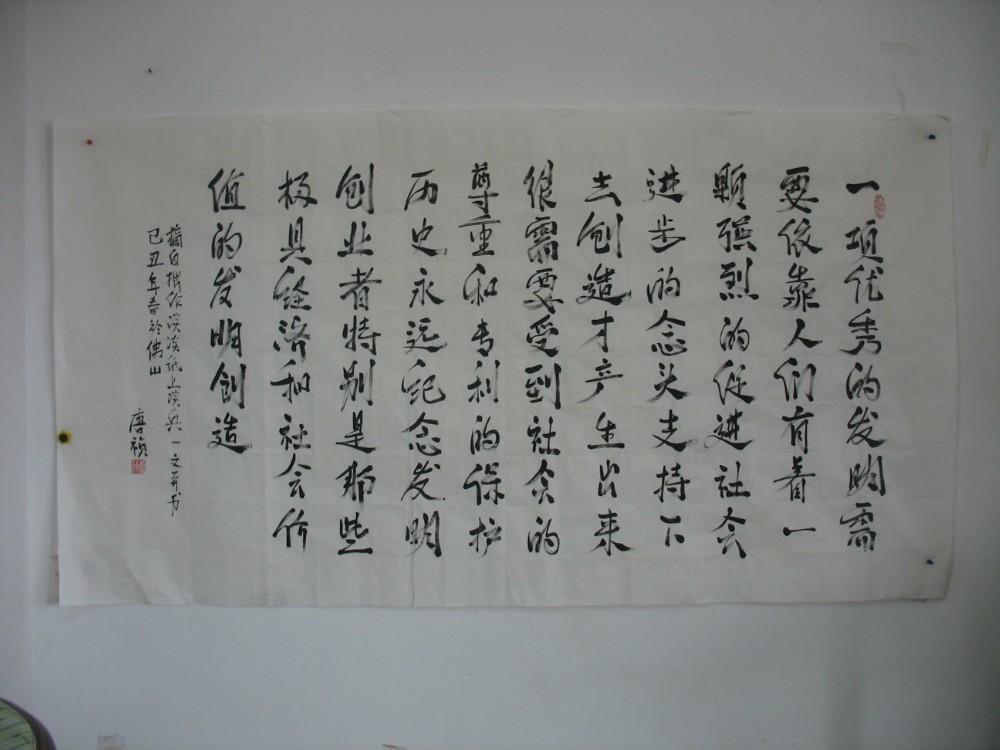 一项优秀的发明需
要依靠人们有着一
颗强烈的促进社会
进步的念头支持下
去创造才产生出来
很需要受到社会的
尊重和专利的保护
历史永远纪念发明
创业者特别是那些
极具经济和社会价
值的发明创造
摘自拙作淡淡纸上淡兴一文并书
己丑年春於佛山
唐祯